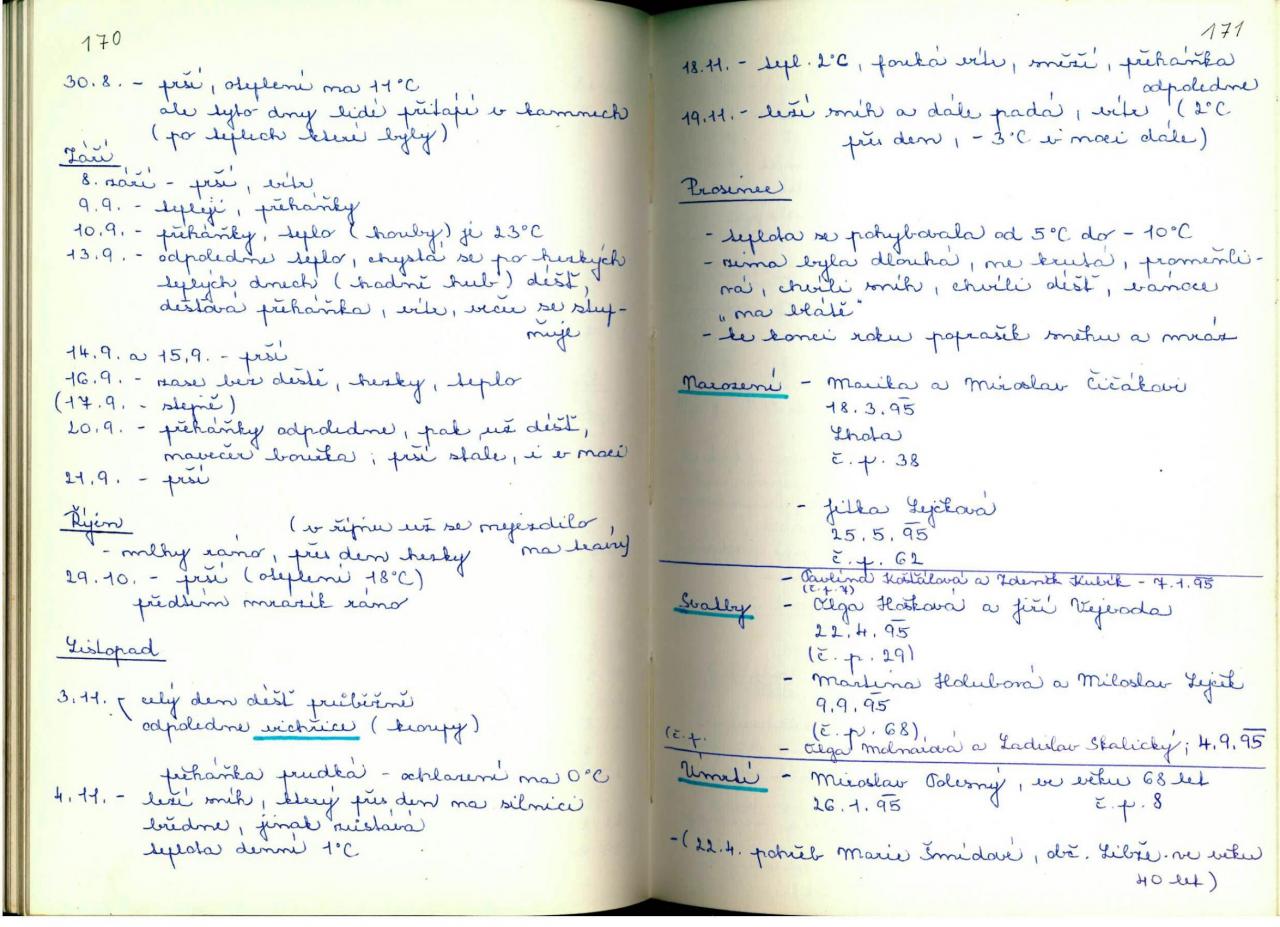 170
30.8. - prší, oteplení na 11°C
ale tyto dny lidé přitápí v kamnech
(po teplech které byly)
Září
8. září - prší, vítr
9.9. - tepleji, přeháňky
10.9. - přeháňky, teplo (houby) je 23°C
13.9. - odpoledne teplo, chystá se po hezkých
teplých dnech (hodně hub) déšť,
dešťová přeháňka, vítr, večer se stup-
ňuje
14.9. a 15.9. - prší
16.9. - zase bez deště, hezky, teplo
(17.9. - stejně)
20.9. - přeháňky odpoledne, pak už déšť,
navečer bouřka; prší stále, i v noci
21.9. - prší
Říjen
(v říjnu už se nejezdilo
na trávu)
- mlhy ráno, přes den hezky
29.10. - prší (oteplení 18°C)
předtím mrazík ráno
Listopad
3.11. - celý den déšť průběžně
odpoledne vichřice (kroupy)
přeháňka prudká - ochlazení na 0°C
4.11. - leží sníh, který přes den na silnici
bředne, jinak zůstává
teplota denní 1°C
171
18.11. - tepl. 2°C, fouká vítr, sněží, přeháňka
odpoledne
19.11. - leží sníh a dále padá, vítr (2°C
přes den, -3°C v noci dále)
Prosinec
- teplota se pohybovala od 5°C do -10°C
- zima byla dlouhá, ne krutá, proměnli-
vá, chvíli sníh, chvíli déšť, vánoce
„na blátě"
- ke konci roku poprašek sněhu a mráz
Narození - Marika a Miroslav Čičákovi
18.3.95
Lhota
č.p. 38
- Jitka Lejčková
25.5.95
č.p. 62
- Pavlína Košťálová a Zdeněk Kubík - 7.1.95
(č.p. 7)
Svatby - Olga Hošková a Jiří Vejvoda
22.4.95
(č.p. 29)
- Martina Holubová a Miloslav Lejček
9.9.95
(č.p. 68)
(č.p.
- Olga Molnárová a Ladislav Skalický; 4.9.95
Úmrtí - Miroslav Polesný, ve věku 68 let
26.1.95 č.p. 8
- (22.4. pohřeb Marie Šmídové, obč. Libže ve věku
40 let)